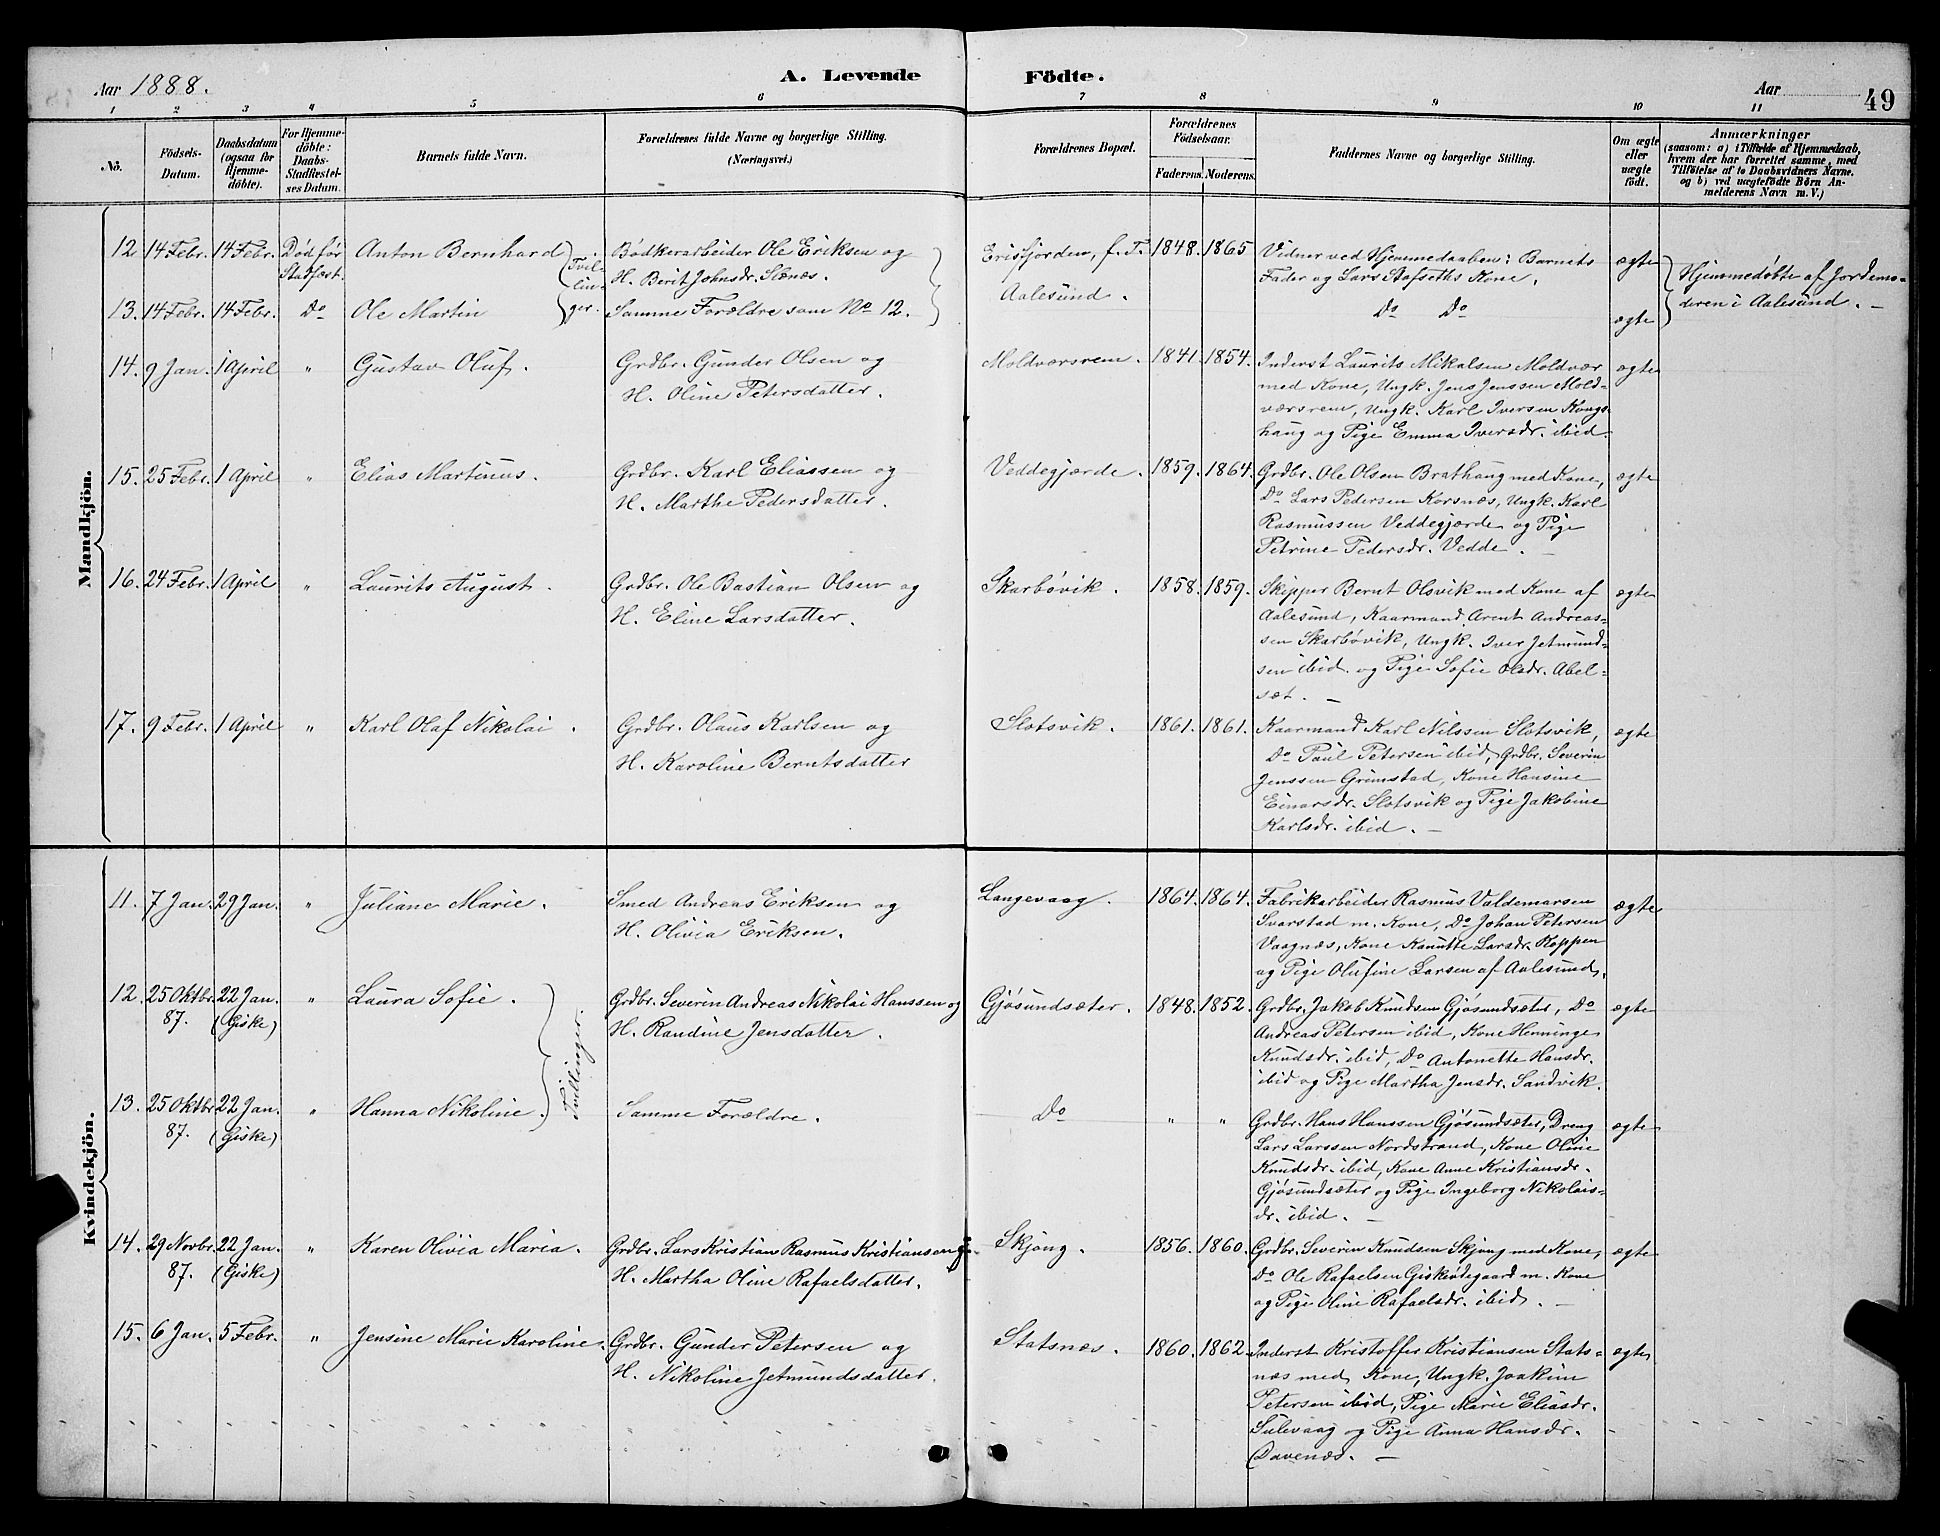 Aar 1888.
A. Levende Födte.
Aar
49
1 2 3 4 5 6 7 8 9 10 11
No.
Födsels-Datum.
Daabsdatum (ogsaa for Hjemmedöbte).
For Hjemmedöbte: Daabs-Stadfestelses Datum.
Barnets fulde Navn.
Forældrenes fulde Navne og borgerlige Stilling. (Næringsvei.)
Forældrenes Bopæl.
Forældrenes Födselsaar.
Faderens. Moderens.
Faddernes Navne og borgerlige Stilling.
Om ægte eller uægte födt.
Anmærkninger
(saasom: a) i Tilfælde af Hjemmedaab,
hvem der har forrettet samme, med
Tilföielse af to Daabsvidners Navne.
og b) ved uægtefödte Börn An-
melderens Navn m.V.)
Mandkjön.
12. 14 Febr. 14 Febr. Död før Stadfæst. Anton Bernhard Tvillinger. Bødkerarbeider Ole Eriksen og
H. Berit Johnsdr. Slenæs.
Erisfjorden, f. T. Aalesund. 1848. 1865 Vidner ved Hjemmedaaben: Barnets
Fader og Lars Stafseths Kone. ægte
Hjemmedøbte af Jordemo-
deren i Aalesund. —
13. 14 Febr. 14 Febr. Do Ole Martin Samme Forældre som No 12. Do Do ægte
14. 9 Jan. 1 April " Gustav Oluf. Grdbr. Gunder Olsen og
H. Oline Petersdatter.
Moldværsrem. 1841. 1854. Inderst Laurits Mikalsen Moldvær ægte
med Kone, Ungk. Jens Jenssen Mold-
værsrem, Ungk. Karl Iversen Kongs-
haug og Pige Emma Iversdr. ibid.
15. 25 Febr. 1 April " Elias Martinus. Grdbr. Karl Eliassen og
H. Marthe Pedersdatter.
Veddegjærde. 1859. 1864. Grdbr. Ole Olsen Brathaug med Kone, ægte
Do Lars Pedersen Korsnæs, Ungk. Karl
Rasmussen Veddegjærde og Pige
Petrine Pedersdr. Vedde. —
16. 24 Febr. 1 April " Laurits August. Grdbr. Ole Bastian Olsen og
H. Eline Larsdatter.
Skarbøvik. 1858. 1859. Skipper Bernt Olsvik med Kone af ægte
Aalesund, Kaarmand Arent Andreas-
sen Skarbøvik, Ungk. Iver Jetmund-
sen ibid. og Pige Sofie Olsdr. Abel-
sæt. —
17. 9 Febr. 1 April " Karl Olaf Nikolai. Grdbr. Olaus Karlsen og
H. Karoline Berntsdatter
Slotsvik. 1861. 1861. Kaarmand Karl Nilssen Slotsvik, ægte
Do Paul Petersen ibid, Grdbr. Severin
Jenssen Grimstad, Kone Hansine
Einarsdr. Slotsvik og Pige Jakobine
Karlsdr. ibid. —
Kvindekjön.
11. 7 Jan. 29 Jan. " Juliane Marie. Smed Andreas Eriksen og
H. Olivia Eriksen.
Langevaag. 1864. 1864. Fabrikarbeider Rasmus Valdemarsen ægte
Svarstad m. Kone, Do Johan Petersen
Vaagnæs, Kone Kanutte Larsdr. Koppen
og Pige Olufine Larsen af Aalesund.
12. 25 Oktbr. 87. 22 Jan. (Giske) " Laura Sofie. Tvillinger. Grdbr. Severin Andreas Nikolai Hanssen og
H. Randine Jensdatter.
Gjøsundsæter. 1848. 1852. Grdbr. Jakob Knudsen Gjøsundsæter, Do ægte
Andreas Petersen ibid, Kone Henninge
Knudsdr. ibid, Do Antonette Hansdr.
ibid og Pige Martha Jensdr. Sandvik.
13. 25 Oktbr 87. 22 Jan. (Giske) " Hanna Nikoline. Samme Forældre. Do " " Grdbr. Hans Hanssen Gjøsundsæter, Dreng ægte
Lars Larssen Nordstrand, Kone Oline
Knudsdr. ibid, Kone Anne Kristiansdr.
Gjøsundsæter og Pige Ingeborg Nikolais-
dr. ibid. —
14. 29 Novbr. 87. 22 Jan. (Giske) " Karen Olivia Maria. Grdbr. Lars Kristian Rasmus Kristiansen og
H. Martha Oline Rafaelsdatter.
Skjong. 1856. 1860. Grdbr. Severin Knudsen Skjong med Kone, ægte
Do Ole Rafaelsen Giskeødegaard m. Kone
og Pige Oline Rafaelsdr. ibid. —
15. 6 Jan. 5 Febr. " Jensine Marie Karoline. Grdbr. Gunder Petersen og
H. Nikoline Jetmundsdatter.
Statsnæs. 1860. 1862. Inderst Kristoffer Kristiansen Stats- ægte
næs med Kone, Ungk. Joakim
Petersen ibid, Pige Marie Eliasdr.
Sulevaag og Pige Anna Hansdr.
Davenæs. —